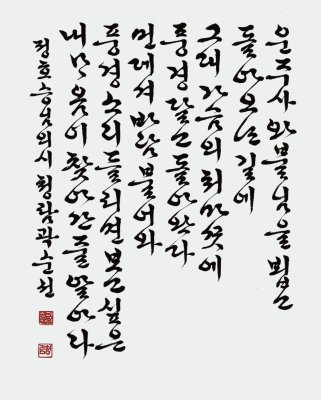 운주사 와불님을 뵙고
돌아오는 길에
그대 가슴의 처마끝에
풍경 달고 돌아왔다
먼데서 바람 불어와
풍경소리 들리면 보고 싶은
내 마음이 찾아간 줄 알아라
정호승님의 시 청람 곽순선